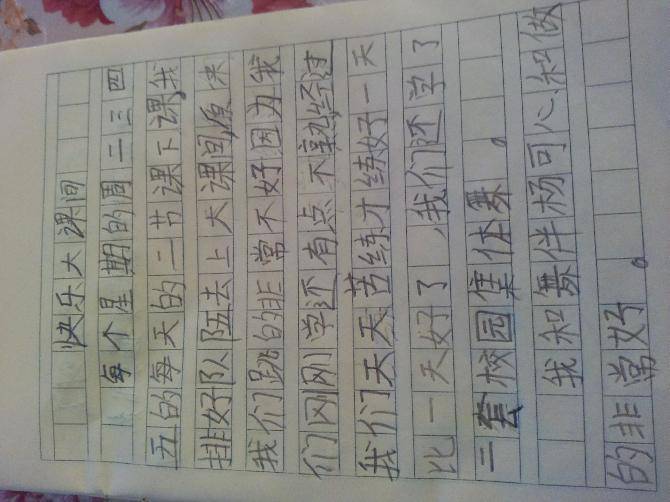 快乐大课间
每个星期的周二三四
五的每天的二节课下课我
排好队伍去上大课间,原来
我们跳的非常不好因为我
们刚刚学还有点不熟经过
我们天天苦练才练好一天
比一天好了,我们还学了
二套校园集体舞。
我和舞伴杨可心和做
的非常好。